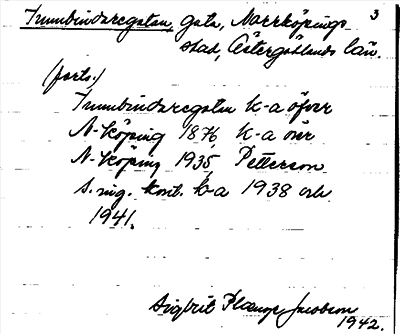 3
Tunnbindaregatan, gata, Norrköpings
stad, Östergötlands län.
(forts.)
Tunnbindaregatan k-a öfver
N-köping 1876, k-a över
N-köping 1935, Petterson
s. ing. kont. k-a 1938 och
1941.
Sigfrid Plange Jacobson
1942.